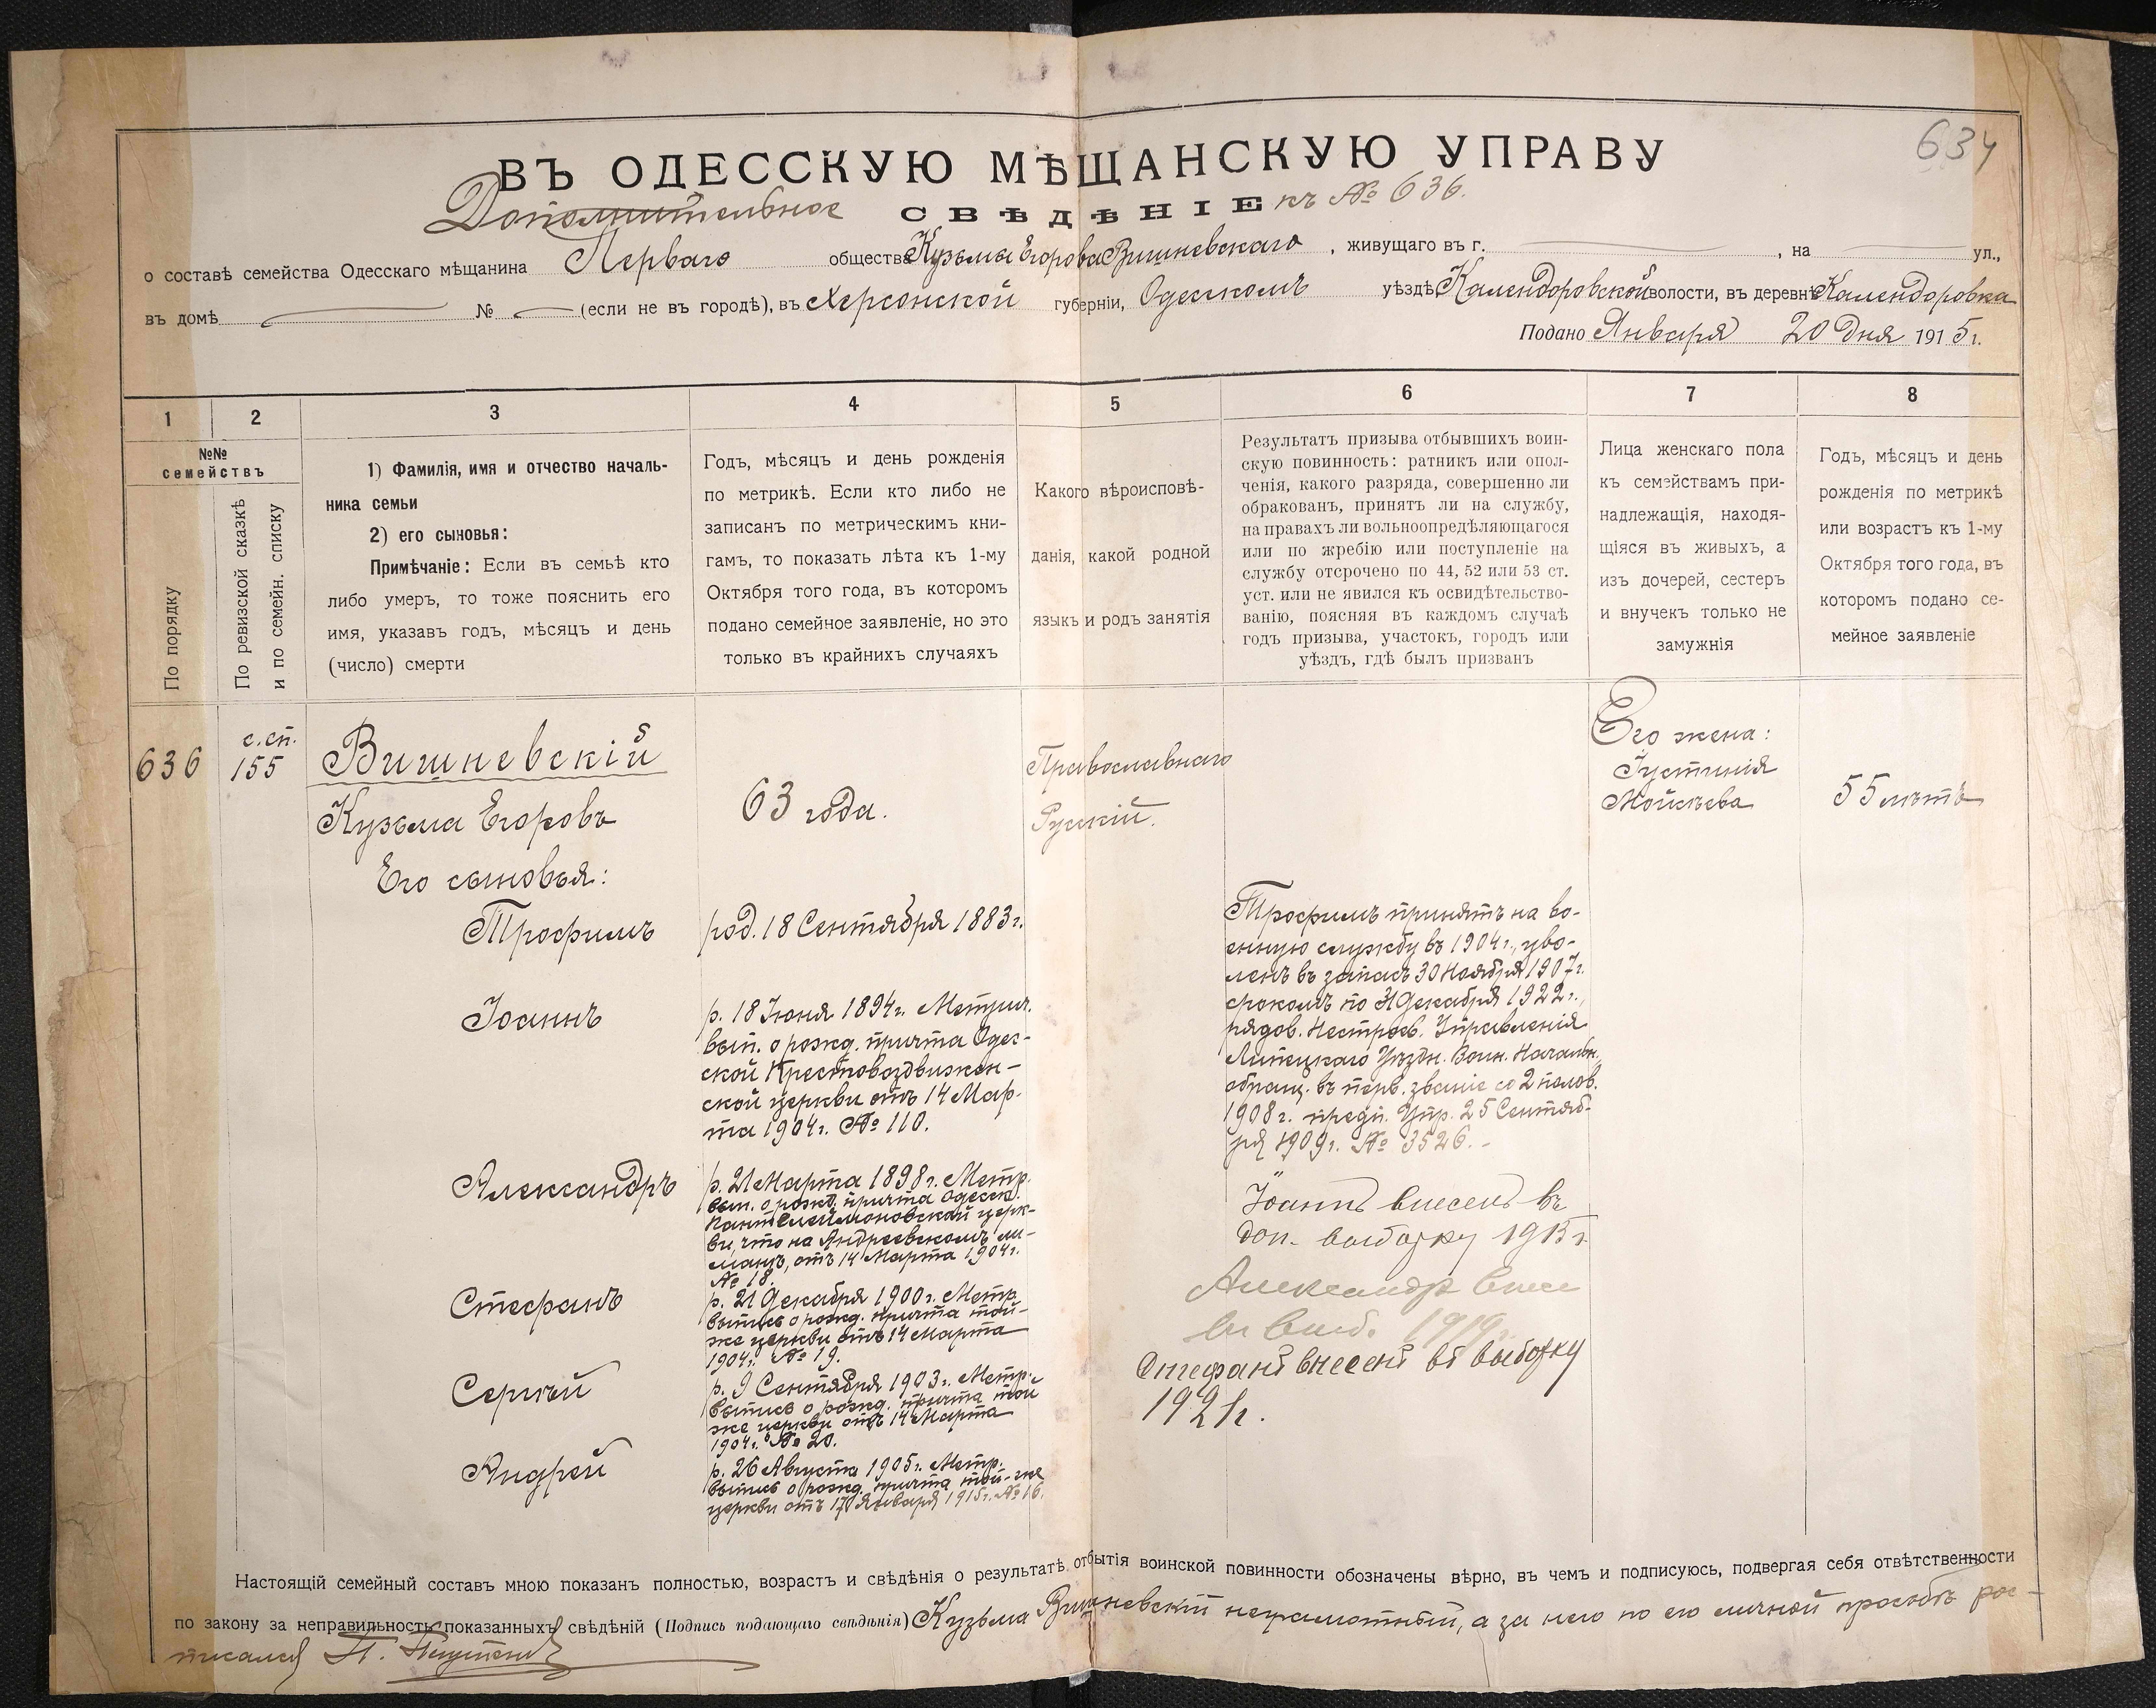 634
ВЪ ОДЕССКУЮ МѢЩАНСКУЮ УПРАВУ
Дополнительное СВѢДѢНІЕ къ № 636.
о составѣ семейства Одесскаго мѣщанина Перваго общества Кузьмы Егорова Вишневскаго, живущаго въ г. , на ул.,
въ домѣ № (если не въ городѣ), въ Херсонской губерніи, Одесскомъ уѣздѣ Календоровской волости, въ деревнѣ Календоровка
Подано Января 20 дня 1915 г.
1 2 3 4 5 6 7 8
№№
семействъ
По порядку
По ревизской сказкѣ
и по семейн. списку
1) Фамилія, имя и отчество началь-
ника семьи
2) его сыновья:
Примѣчаніе: Если въ семьѣ кто
либо умеръ, то тоже пояснить его
имя, указавъ годъ, мѣсяцъ и день
(число) смерти
Годъ, мѣсяцъ и день рожденія
по метрикѣ. Если кто либо не
записанъ по метрическимъ кни-
гамъ, то показать лѣта къ 1-му
Октября того года, въ которомъ
подано семейное заявленіе, но это
только въ крайнихъ случаяхъ
Какого вѣроисповѣ-
данія, какой родной
языкъ и родъ занятія
Результатъ призыва отбывшихъ воин-
скую повинность: ратникъ или опол-
ченія, какого разряда, совершенно ли
обракованъ, принятъ ли на службу,
на правахъ ли вольноопредѣляющагося
или по жребію или поступленіе на
службу отсрочено по 44, 52 или 53 ст.
уст. или не явился къ освидѣтельство-
ванію, поясняя въ каждомъ случаѣ
годъ призыва, участокъ, городъ или
уѣздъ, гдѣ былъ призванъ
Лица женскаго пола
къ семействамъ при-
надлежащія, находя-
щіяся въ живыхъ, а
изъ дочерей, сестеръ
и внучекъ только не
замужнія
Годъ, мѣсяцъ и день
рожденія по метрикѣ
или возрастъ къ 1-му
Октября того года, въ
которомъ подано се-
мейное заявленіе
636
с. сп.
155
Вишневскій
Кузьма Егоровъ
63 года.
Православнаго
Русскій.
Его жена:
Іустинія
Мойсѣева
55 лѣтъ
Его сыновья:
Трофимъ
род. 18 Сентября 1883 г.
Іоаннъ
р. 18 Іюня 1894 г. Метрич.
вып. о рожд. причта Одес-
ской Крестовоздвижен-
ской церкви отъ 14 Мар-
та 1904 г. № 110.
Александръ
р. 21 Марта 1898 г. Метр.
вып. о рожд. причта Одесск.
Пантелеймоновской церк-
ви, что на Андреевскомъ ли-
манѣ, отъ 14 Марта 1904 г.
№ 18.
Стефанъ
р. 21 Декабря 1900 г. Метр.
выпись о рожд. причта той-
же церкви отъ 14 Марта
1904 г. № 19.
Сергѣй
р. 9 Сентября 1903 г. Метр.
выпись о рожд. причта той
же церкви отъ 14 Марта
1904 г. № 20.
Андрей
р. 26 Августа 1905 г. Метр.
выпись о рожд. причта той-же
церкви отъ 17 Января 1915 г. № 16.
Трофимъ принятъ на во-
енную службу въ 1904 г., уво-
ленъ въ запасъ 30 Ноября 1907 г.
срокомъ по 31 Декабря 1922 г.,
рядов. Нестроев. Управленія
Липецкаго Уѣздн. Воин. Начальн.,
обращ. въ перв. званіе со 2 полов.
1908 г. предп. Упр. 25 Сентяб-
ря 1909 г. № 3526.
Іоаннъ внесенъ въ
доп. выборку 1915 г.
Александр внес
в выб. 1919
Стефанъ внесенъ въ выборку
1921 г.
Настоящій семейный составъ мною показанъ полностью, возрастъ и свѣдѣнія о результатѣ отбытія воинской повинности обозначены вѣрно, въ чемъ и подписуюсь, подвергая себя отвѣтственности
по закону за неправильность показанныхъ свѣдѣній (Подпись подающаго свѣдѣнія) Кузьма Вишневскій неграмотный, а за него по его личной просьбѣ рос-
писался П.